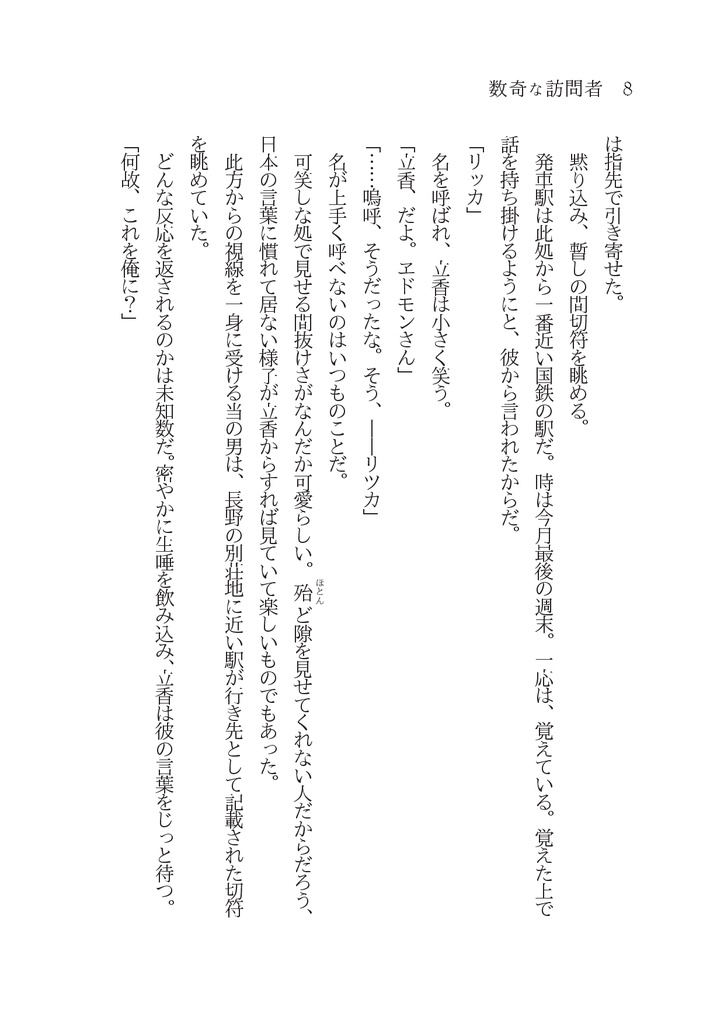 数奇な訪問者 8
は指先で引き寄せた。
黙り込み、暫しの間切符を眺める。
発車駅は此処から一番近い国鉄の駅だ。時は今月最後の週末。一応は、覚えている。覚えた上で
話を持ち掛けるようにと、彼から言われたからだ。
「リッカ」
名を呼ばれ、立香は小さく笑う。
「立香、だよ。ヱドモンさん」
「……嗚呼、そうだったな。そう、――リツカ」
名が上手く呼べないのはいつものことだ。
可笑しな処で見せる間抜けさがなんだか可愛らしい。殆ほとんど隙を見せてくれない人だからだろう、
日本の言葉に慣れて居ない様子が立香からすれば見ていて楽しいものでもあった。
此方からの視線を一身に受ける当の男は、長野の別荘地に近い駅が行き先として記載された切符
を眺めていた。
どんな反応を返されるのかは未知数だ。密やかに生唾を飲み込み、立香は彼の言葉をじっと待つ。
「何故、これを俺に？」